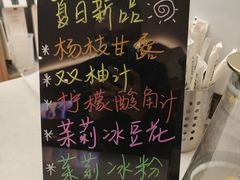 夏日新品
*杨枝甘露
*双柚汁
*柠檬酸角汁
*茉莉冰豆花
*茉莉冰粉